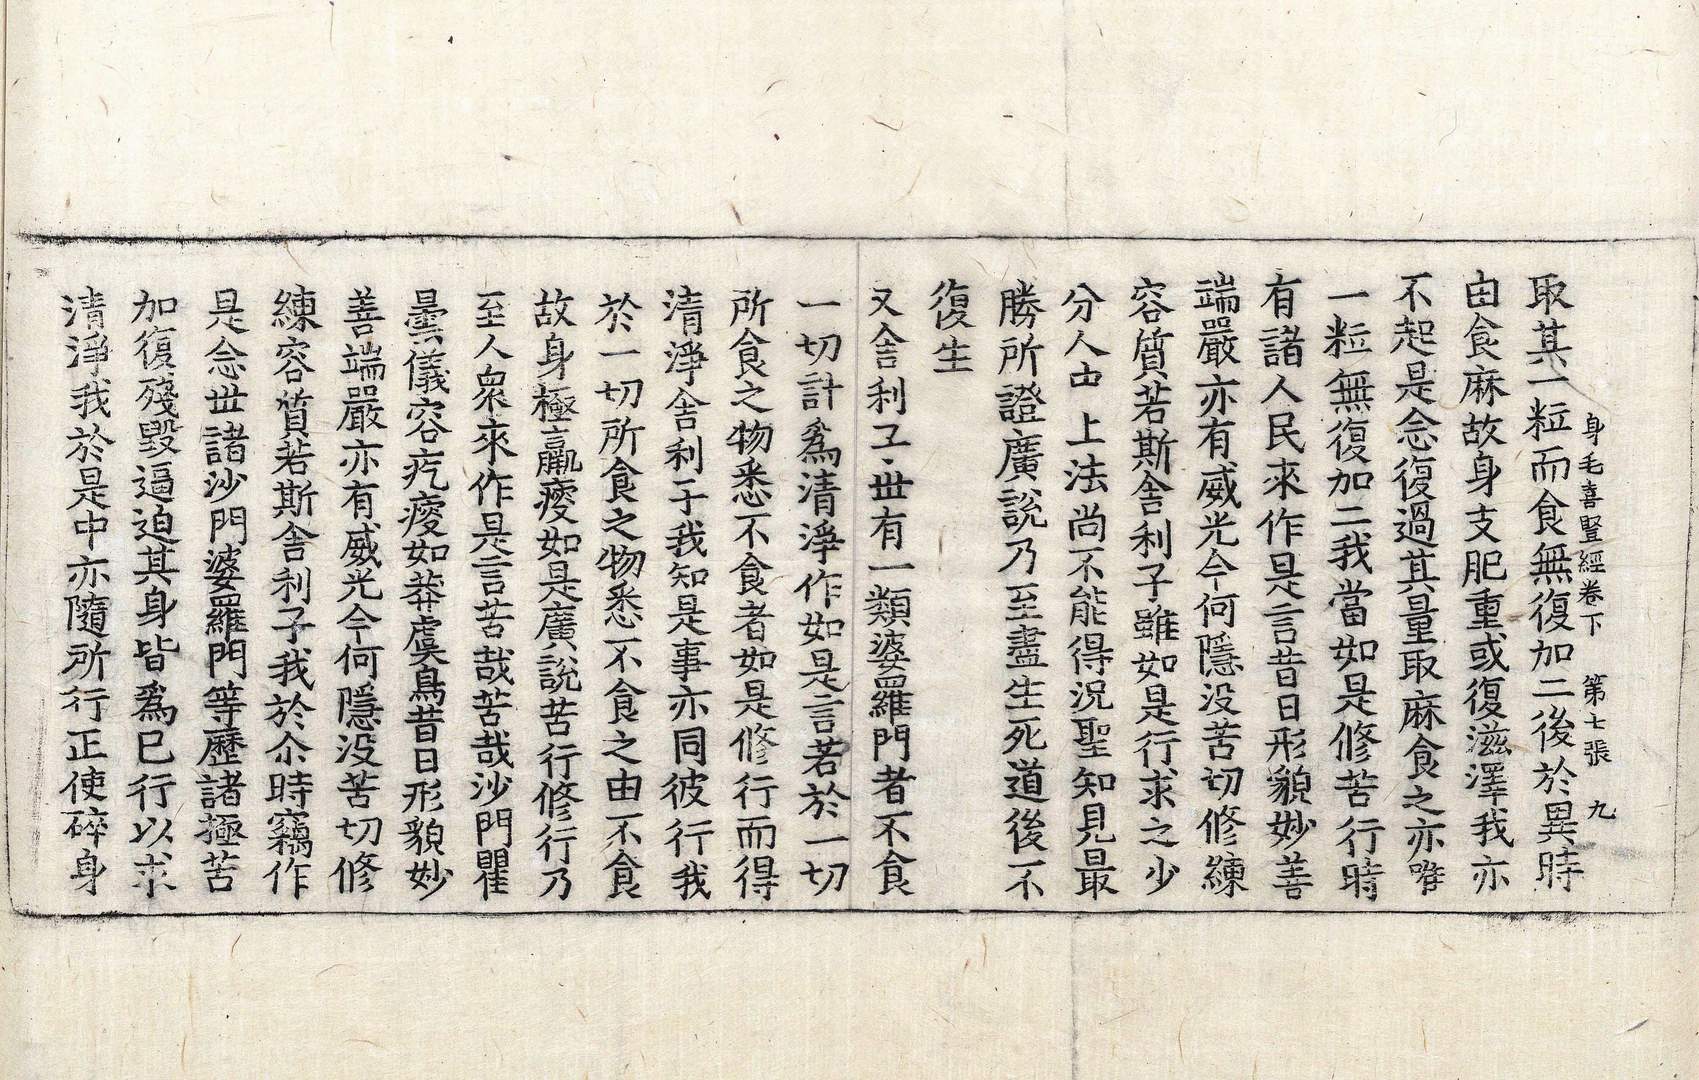 身毛喜竪經卷下　第七張　九
取其一粒而食無復加二後於異時
由食麻故身支肥重或復滋澤我亦
不起是念復過其量取麻食之亦唯
一粒無復加二我當如是修苦行時
有諸人民來作是言昔日形貌妙善
端嚴亦有威光今何隱没苦切修練
容質若斯舍利子雖如是行求之少
分人中上法尚不能得況聖知見最
勝所證廣說乃至盡生死道後不
復生
又舍利子世有一類婆羅門者不食
一切計爲清淨作如是言若於一切
所食之物悉不食者如是修行而得
清淨舍利子我知是事亦同彼行我
於一切所食之物悉不食之由不食
故身極羸瘦如是廣說苦行修行乃
至人衆來作是言苦哉苦哉沙門瞿
曇儀容疙瘦如莽虞鳥昔日形貌妙
善端嚴亦有威光今何隱没苦切修
練容質若斯舍利子我於尒時竊作
是念世諸沙門婆羅門等歷諸極苦
加復殘毀逼迫其身皆爲已行以求
清淨我於是中亦隨所行正使碎身